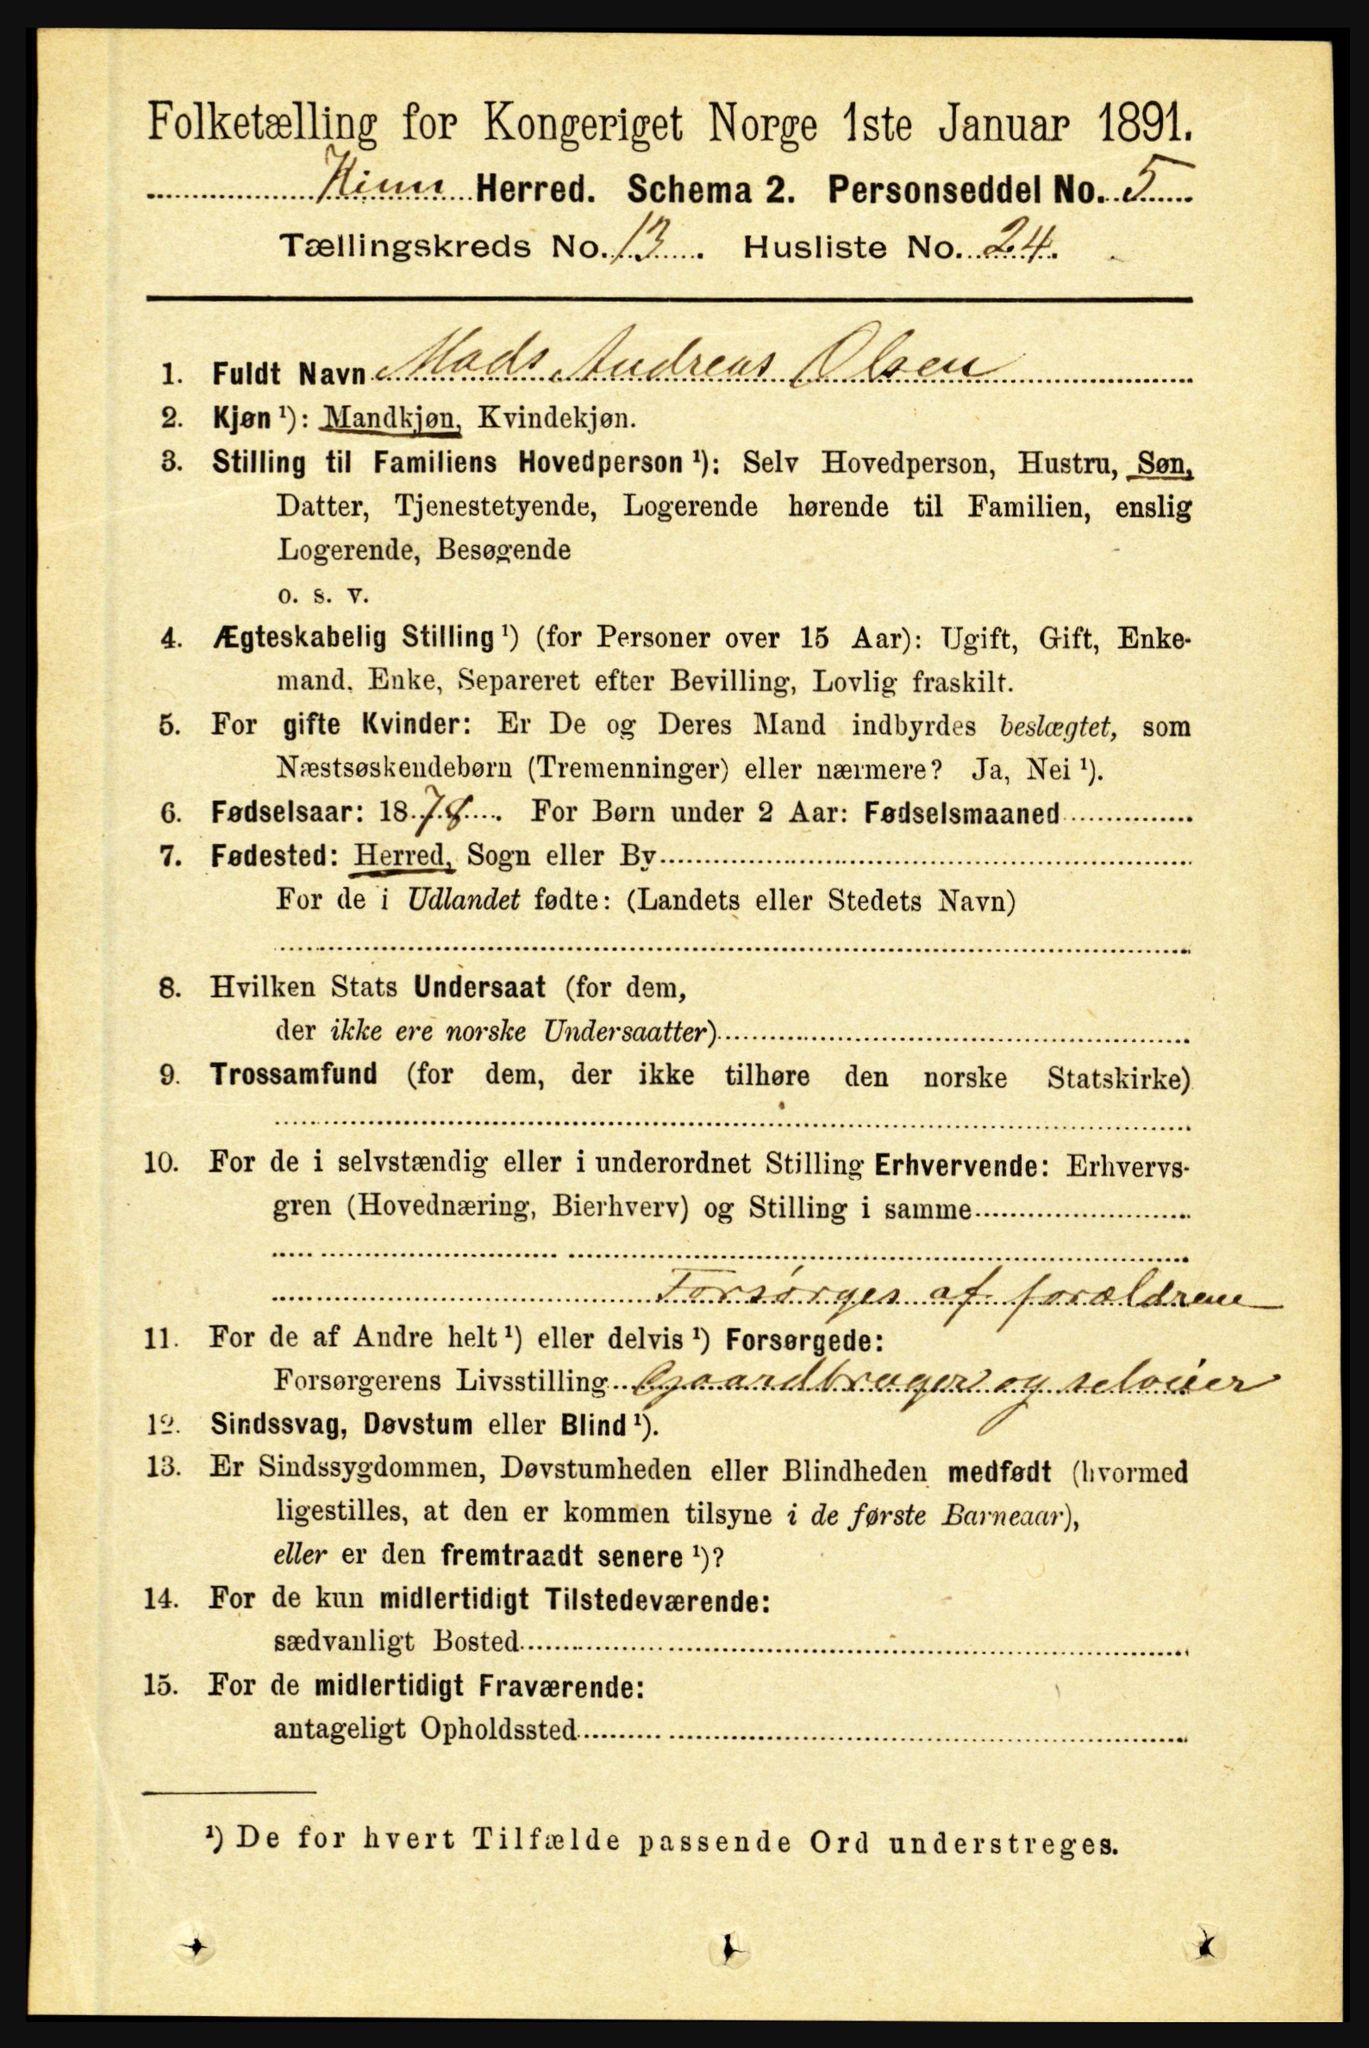 Folketælling for Kongeriget Norge 1ste Januar 1891.
Kinn Herred. Schema 2. Personseddel No. 5
Tællingskreds No. 13. Husliste No. 24.
1. Fuldt Navn Mads Andreas Olsen
2. Kjøn ¹): Mandkjøn, Kvindekjøn.
3. Stilling til Familiens Hovedperson ¹): Selv Hovedperson, Hustru, Søn,
Datter, Tjenestetyende, Logerende hørende til Familien, enslig
Logerende, Besøgende
o. s. v.
4. Ægteskabelig Stilling ¹) (for Personer over 15 Aar): Ugift, Gift, Enke-
mand, Enke, Separeret efter Bevilling, Lovlig fraskilt.
5. For gifte Kvinder: Er De og Deres Mand indbyrdes beslægtet, som
Næstsøskendebørn (Tremenninger) eller nærmere? Ja, Nei ¹).
6. Fødselsaar: 1878. For Børn under 2 Aar: Fødselsmaaned
7. Fødested: Herred, Sogn eller By
For de i Udlandet fødte: (Landets eller Stedets Navn)
8. Hvilken Stats Undersaat (for dem,
der ikke ere norske Undersaatter)
9. Trossamfund (for dem, der ikke tilhøre den norske Statskirke)
10. For de i selvstændig eller i underordnet Stilling Erhvervende: Erhvervs-
gren (Hovednæring, Bierhverv) og Stilling i samme
Forsørges af forældrene
11. For de af Andre helt ¹) eller delvis ¹) Forsørgede:
Forsørgerens Livsstilling Gaardbruger og selveier
12. Sindssvag, Døvstum eller Blind ¹).
13. Er Sindssygdommen, Døvstumheden eller Blindheden medfødt (hvormed
ligestilles, at den er kommen tilsyne i de første Barneaar),
eller er den fremtraadt senere ¹)?
14. For de kun midlertidigt Tilstedeværende:
sædvanligt Bosted
15. For de midlertidigt Fraværende:
antageligt Opholdssted
¹) De for hvert Tilfælde passende Ord understreges.